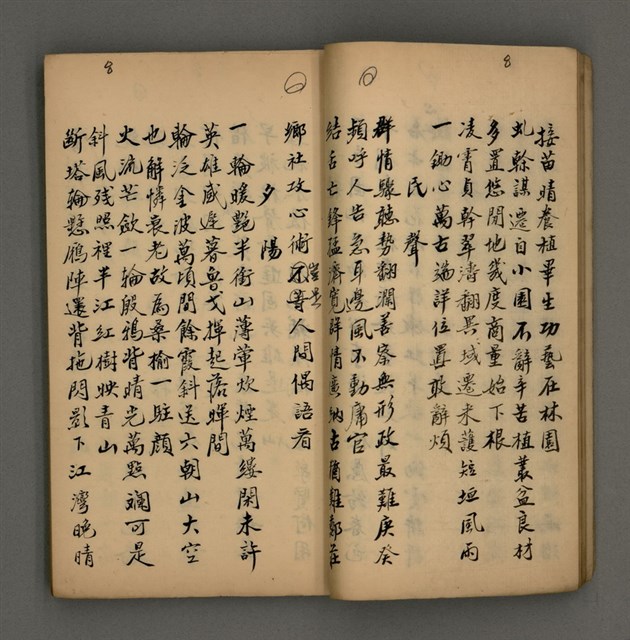 8
接苗晴養植畢生功藝在林園
虬幹謀遷自小園不辭辛苦植叢盆良材
多置悠閒地幾度商量始下根
凌霄貞幹翠濤翻異域遷來護短垣風雨
一鋤心萬古端詳位置敢辭煩
民聲
群情驟聽勢翻瀾善察無形政最難庚癸
頻呼人告急耳邊風不動庸官
結舌亡鋒猛濟寬詳情意納古酒雖鄭莊
8
鄉社攻心術不等人間偶語看
豈是
夕陽
一輪暖艷半銜山薄暈炊煙萬縷閑未許
英雄感遲暮魯戈揮起落蟬間
輪泛金波萬頃間餘霞斜送六朝山大空
也解憐衰老故為桑榆一駐顏
火流芒歛一輪殷鴉背晴光萬點斕可是
斜風殘照裡半江紅樹映青山
斷塔輪懸雁陣還背拖閃影下江灣晚晴